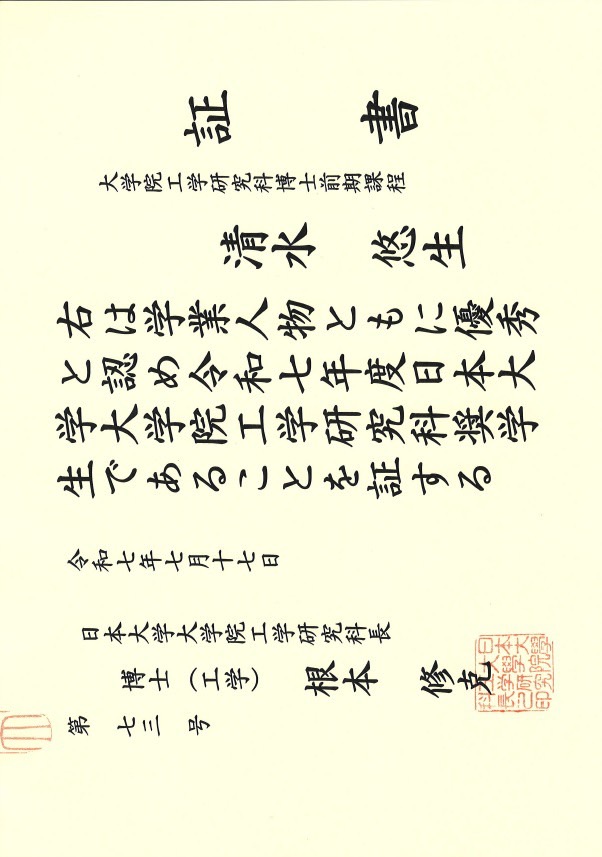 証書
大学院工学研究科博士前期課程
清水 悠生
右は学業人物ともに優秀
と認め令和七年度日本大
学大学院工学研究科奨学
生であることを証する
令和七年七月十七日
日本大学大学院工学研究科長
博士（工学） 根本 修克
第 七三 号
日本大學
大學院
工学研究
科長之印